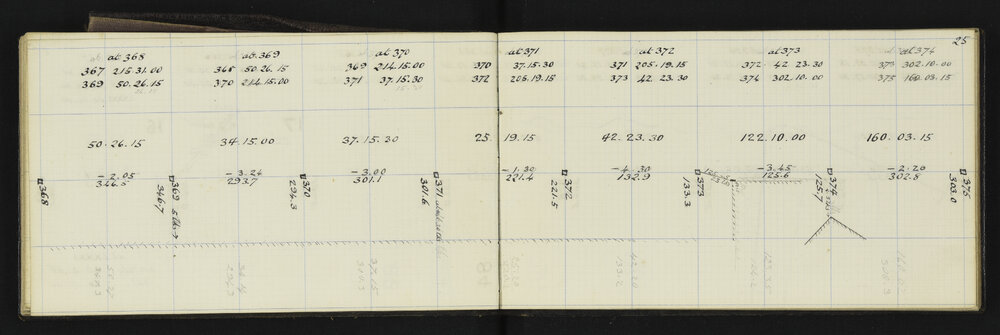 25
at 368
367 215.31.00
369 50.26.15
at 369
368 50.26.15
370 214.15.00
at 370
369 214.15.00
371 37.15.30
at 371
370 37.15.30
372 205.19.15
at 372
371 205.19.15
373 42.23.30
at 373
372 42 23.30
374 302.10.00
at 374
373 302.10.00
375 160.03.15
50.26.15
34.15.00
37.15.30
25. 19.15
42.23.30
122.10.00
160.03.15
-2.05
346.8
-3.24
293.7
-3.00
301.1
-1.30
221.4
-4.30
132.9
-3.45
125.6
-2.20
302.8
368
346.7
369
294.3
370
301.6
371
221.5
372
133.3
373
125.7
374
303.0
375